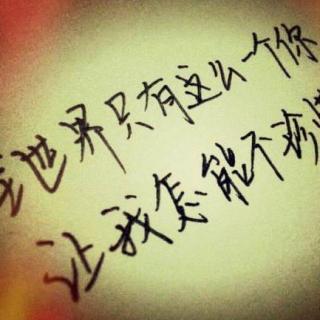 全世界只有这么一个你
让我怎能不珍惜